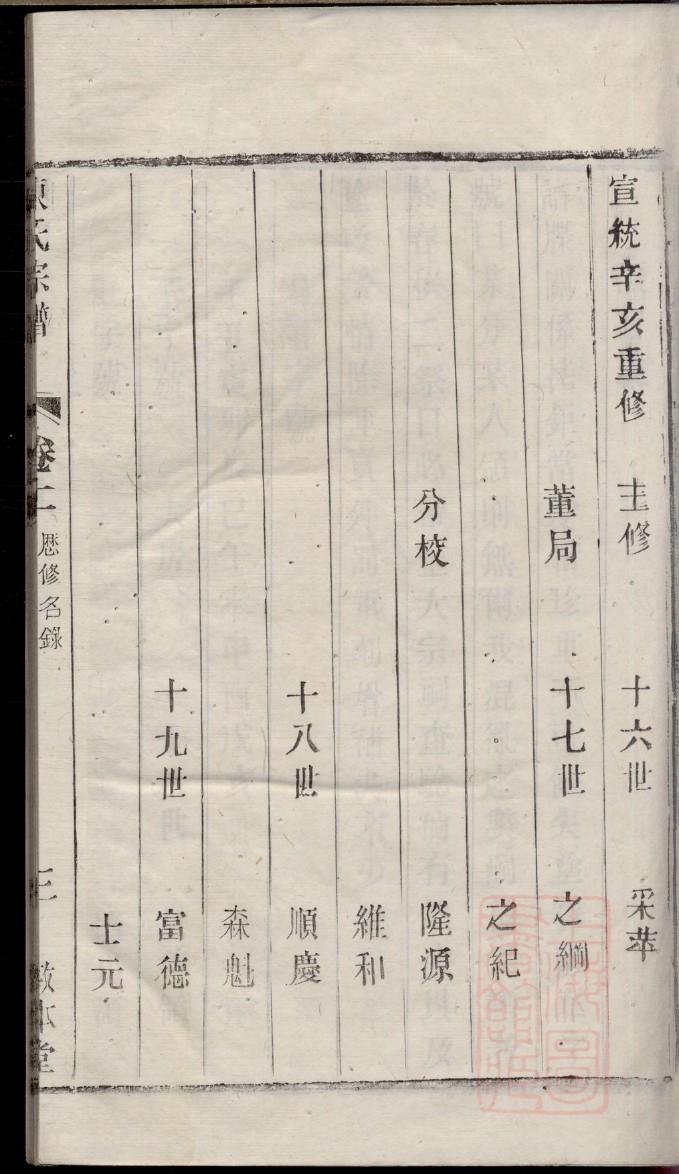 宣統辛亥重修 主修 十六世 采苹
董局 十七世 之綱
之紀
分校 隆源
維和
十八世 順慶
森魁
十九世 富德
士元
氏宗譜 卷二 歷修名錄 三 敦本堂